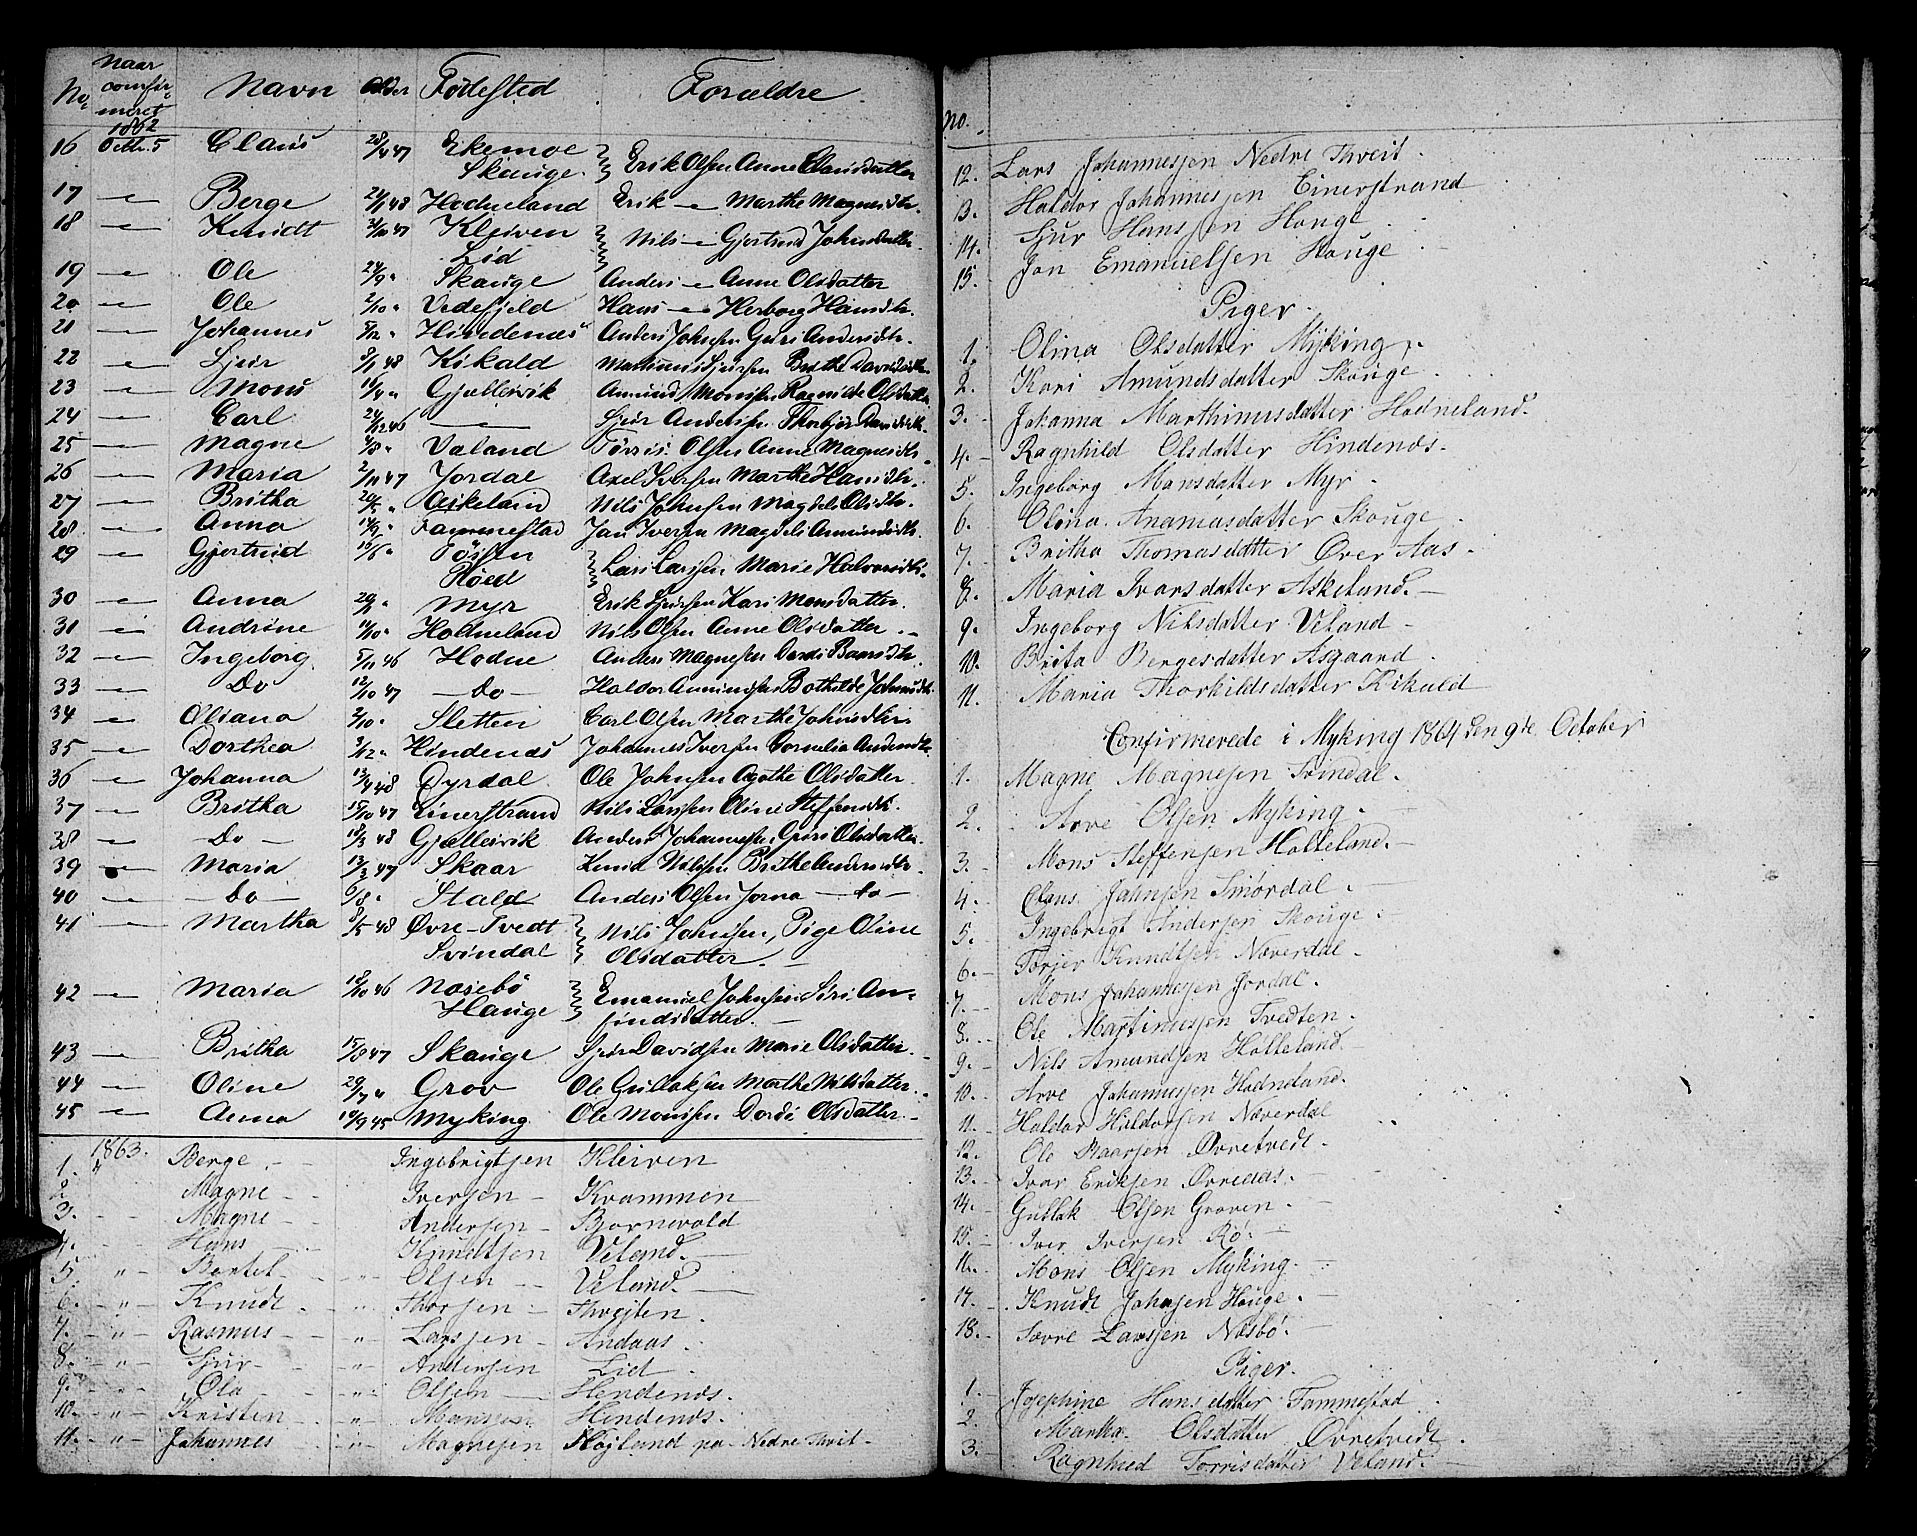 No. Naar confirmeret Navn Alder Fødested Forældre
1862
16 Octbr. 5 Claus 28/4 47 Ekemoe Skauge. Erik Olsen Anne Clausdatter
17 Berge 24/1 48 Hodneland Erik Marthe Magnisdtr.
18 Knudt 47 Kleiven Lid Nils Gjertrud Johnsdatter
19 Ole 24/9 " Skauge Anders Anne Olsdatter
20 Ole 2/10 " Vedefjeld Hans Herborg Hansdtr.
21 Johannes /12 " Hindenæs Anders Johnsen Guri Andersdtr.
22 Sjur 8/1 48 Kikald Sjursen Brithe Davidsdtr.
23 Mons 16/4 " Gjellesvik Amund Monsen Ragnilde Olsdatter
24 Carl 24/12 46 Sjur Andersen Davidsdtr.
25 Magne 4/8 " Valand Tørris Olsen Anne Magnesdtr.
26 Maria 2/11 47 Jordal Axel Iversen Marthe Hansdtr.
27 Britha 20/5 " Askeland Nils Johnsen Magdeli Olsdtr.
28 Anna " Fammestad Jan Iversen Magdeli Amundsdtr.
29 Gjertrud /6 " Tøsten Røed Lars Larsen Marie Halvorsdtr.
30 Anna " Myr Erik Sjursen Kari Monsdatter.
31 Andrine 14/10 " Hodneland Nils Olsen Anne Olsdatter
32 Ingeborg 5/11 46 Hodne Anders Magnesen Dordi Baarsdtr.
33 Do 12/10 47 -do- Haldor Amundsen Bothilde Johnsdtr.
34 Oliana 2/10 " Sletten Carl Olsen Marthe Johnsdtr.
35 Dorthea 3/12 " Hindenæs Johannes Iversen Cornelia Andersdtr.
36 Johanna 13/4 48 Dyrdal Ole Johnsen Agathe Olsdatter
37 Britha 15/10 47 Einerstrand Nils Larsen Oline Steffensdtr.
38 -Do- 18/3 48 Gjellesvik Anders Johannesen Guri Olsdatter.
39 Maria 13/3 47 Skaar Knud Nilsen Brithe Andersdtr.
40 -Do- 6/8 " Stald Anders Olsen Jorna -do-
41 Martha 8/5 48 Øvre-Tvedt Svindal Nils Johnsen, Pige Oline Olsdatter.
42 Maria 18/10 46 Nosebø Hauge Emanuel Johnsen Siri Anfindsdatter.
43 Britha 15/8 47 Skauge Sjur Davidsen Marie Olsdatter.
44 Oline 29/7 " Grov Ole Gullaksen Marthe Nilsdatter.
45 Anna 10/9 45 Myking Ole Monsen Dordi Olsdatter.
1863.
1. " Berge Ingebrigtsen Kleiven
2 Magne Iversen Kvammen
3. Magne Andersen Bjørnevold
4. Hans Knudtsen Veland.
5. " Bertel Olsen Veland.
6. " Knudt Thorsen Thveiten.
7. " Rasmus Larssen Andaas.
8. " Sjur Andersen Lid.
9. " Ola Olsen Hendenæs.
10. " Kristen Monssen Hendenæs.
11. " Johannes Magnesen Høiland pa Nedre Thvit
No.
12. Lars Johannesen Nedre Thveit.
13. Haldor Johannesen Einerstrand
14. Sjur Hansen Houge.
15. Jon Emanuelsen Houge
Piger.
1. Olina Olsdatter Myking.
2. Kari Amundsdatter Skouge.
3. Johanna Marthinusdatter Hodneland.
4. Ragnhild Olsdatter Hindenæs.
5. Ingeborg Monsdatter Myr.
6. Olina Ananiasdatter Skouge.
7. Britha Thomasdatter Over Aas.
8. Maria Ivarsdatter Askeland.
9. Ingeborg Nilsdatter Veland
10. Brita Bergesdatter Asgaard
11. Maria Thorkildsdatter Kikald
Confirmerede i Myking 1864 den 9de October
1. Magne Magnesen Svindal.
2. Arve Olsen Myking.
3. Mons Steffensen Halleland.
4. Claus Johnsen Smørdal.
5. Ingebrigt Andersen Skouge.
6. Torjer Knudtsen Næverdal.
7. Mons Johannesen Jordal.
8. Ole Martinesen Tvedten.
9. Nils Amundsen Halleland.
10. Arve Johannesen Hodneland.
11. Haldor Haldorsen Næverdal
12. Ole Baarsen Øvretvedt.
13. Ivar Eriksen Øvredas.
14. Gullak Olsen Groven.
15. Iver Iversen Rø.
16. Mons Olsen Myking.
17. Knudt Johnsen Houge.
18. Sævre Larssen Næsbø.
Piger.
1. Josephine Hansdatter Fammestad
2. Martha Olsdatter Øvretvedt.
3. Ragnhild Torrisdatter Veland.